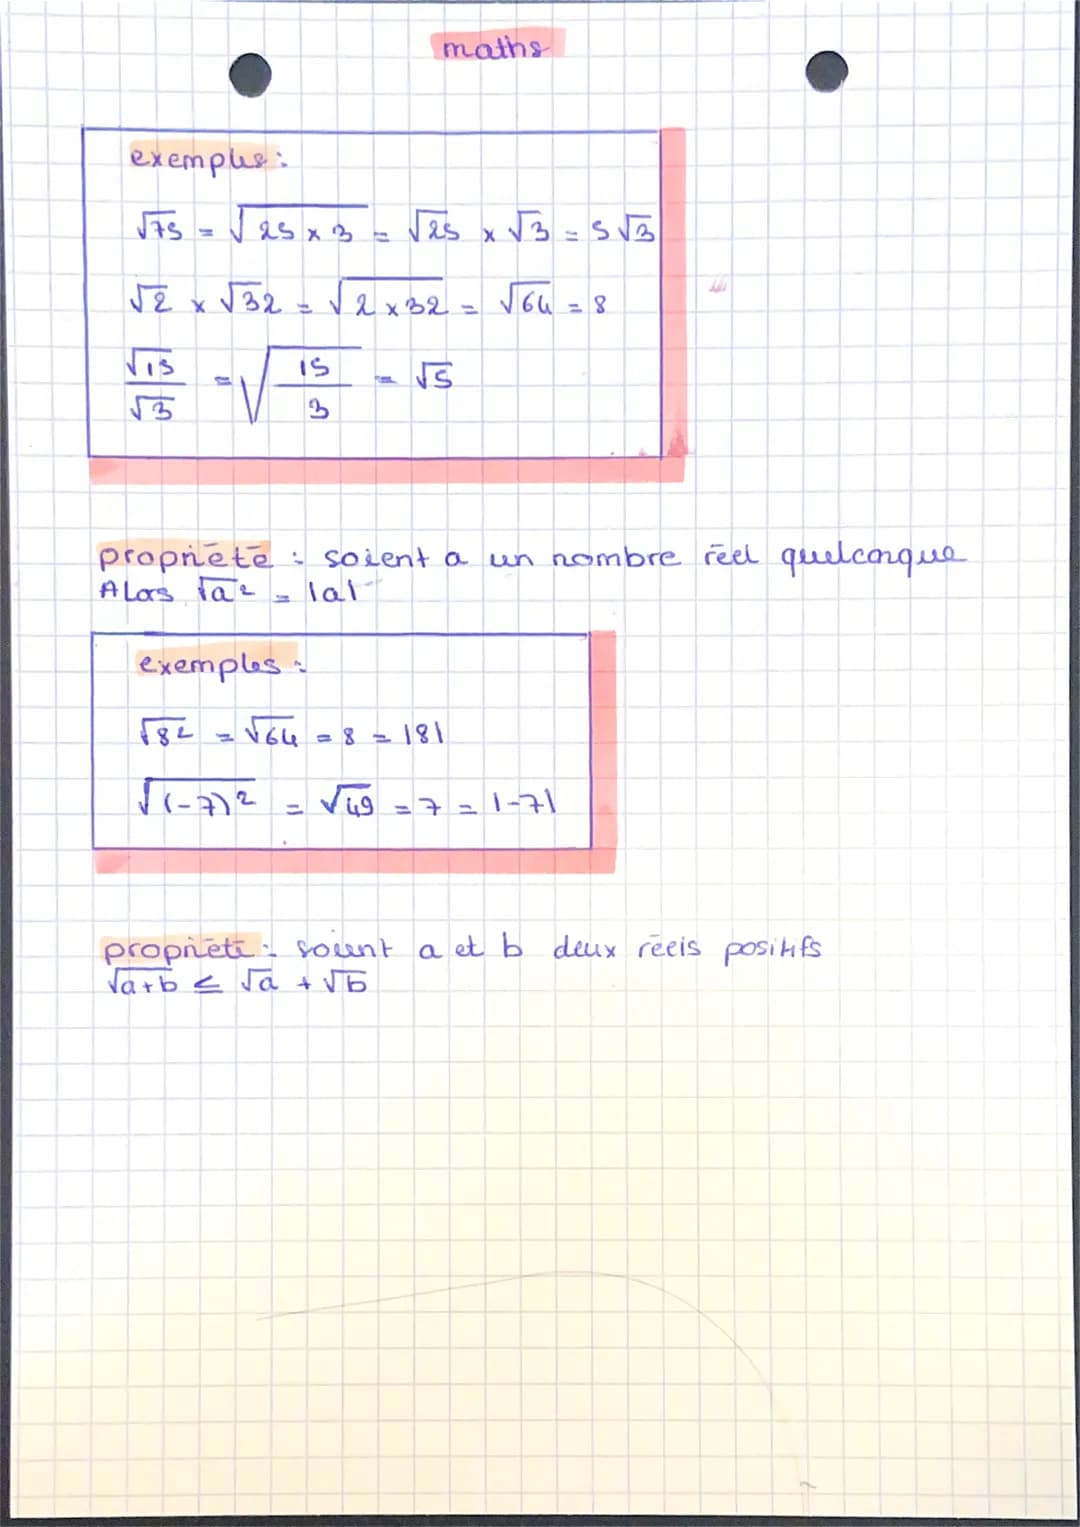 maths
exemples :
√75 = √25 × 3 = √25 × √3 = 5√3
√2 × √32 = √2 × 32 = √64 = 8
√15/√3 = √15/3 = √5
propriété : soient a un nombre réel quelconque
Alors √a² = |a|
exemples :
√8² = √64 = 8 = |8|
√(-7)² = √49 = 7 = |-7|
propriété : soient a et b deux réels positifs
√a+b ≤ √a + √b